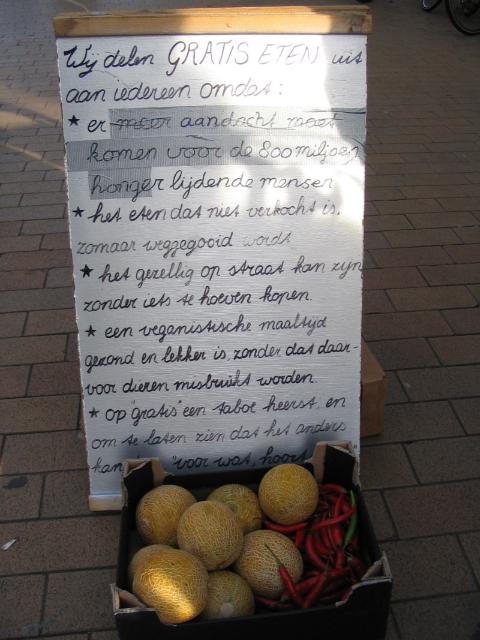 Wij delen GRATIS ETEN uit
aan iedereen omdat:
★ er meer aandacht moet
komen voor de 800 miljoen
honger lijdende mensen
★ het eten dat niet verkocht is,
zomaar weggegooid wordt
★ het gezellig op straat kan zijn
zonder iets te hoeven kopen.
★ een veganistische maaltijd
gezond en lekker is, zonder dat daar-
voor dieren misbruikt worden.
★ op "gratis" een taboe heerst, en
om te laten zien dat het anders
kan "voor wat, hoort